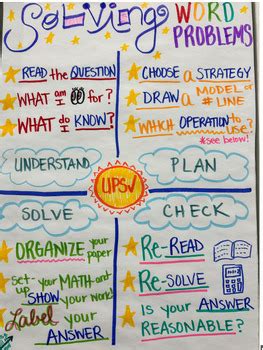 Solving WORD
PROBLEMS
READ the QUESTION
WHAT am I for?
WHAT do I KNOW?
CHOOSE a STRATEGY
DRAW a MODEL or
# LINE
WHICH OPERATION to
use?
*see below!
UNDERSTAND
PLAN
UPSV
SOLVE
CHECK
ORGANIZE your
paper
Set-your MATH-out
up SHOW your work
Label your
ANSWER
Re-READ
Re-SOLVE
Is your ANSWER
REASONABLE?